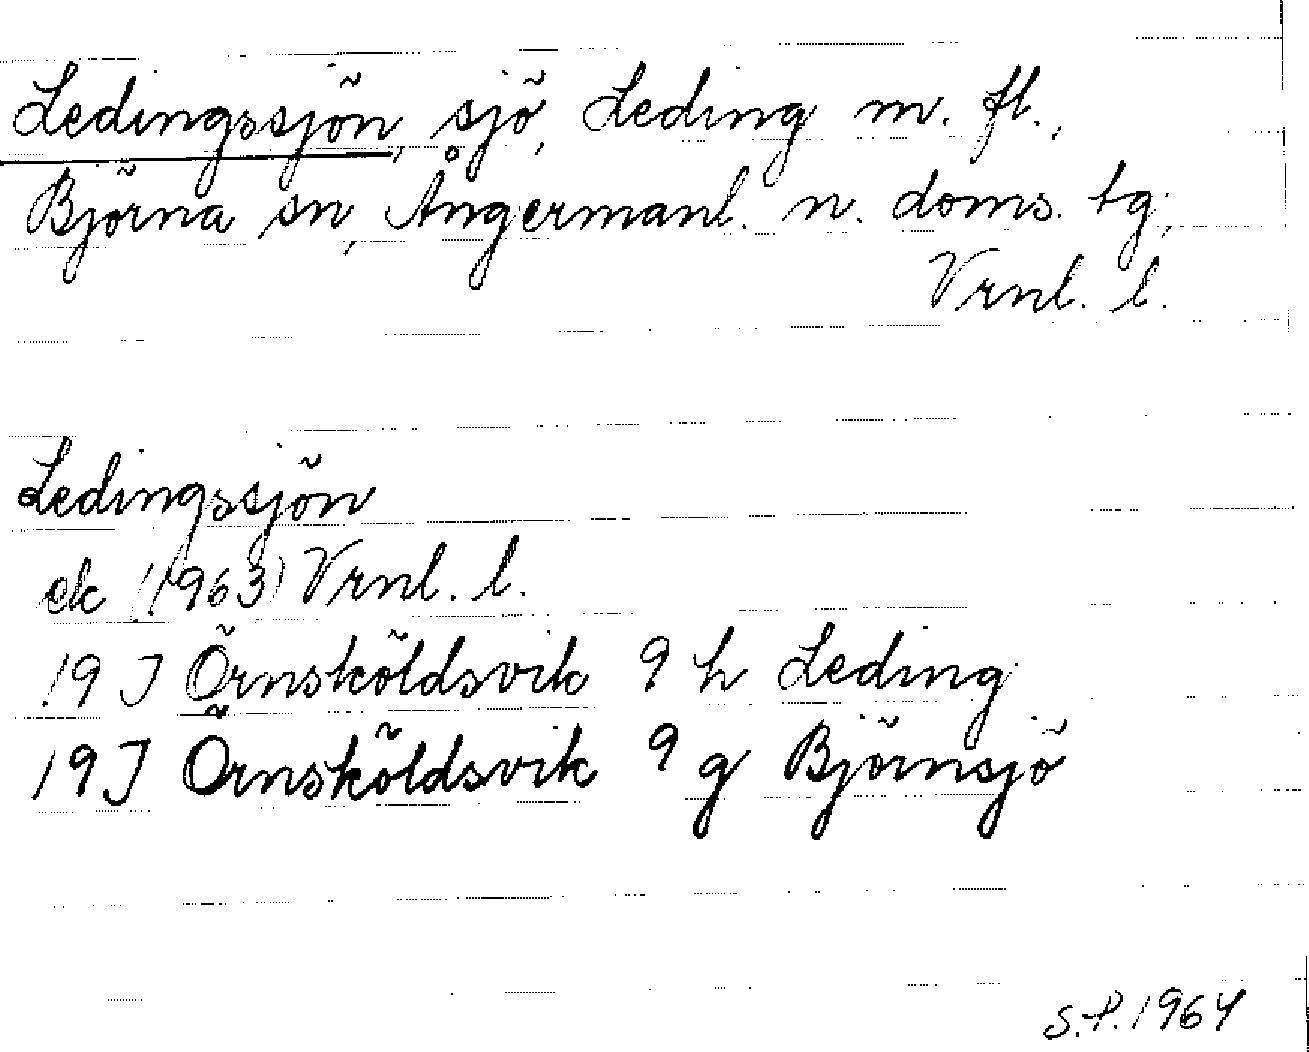 Ledingssjön, sjö, Leding m. fl.,
Björna sn, Ångermanl. n. doms. tg,
Vrnl. l.
Ledingssjön
ek (1963) Vrnl. l.
19 J Örnsköldsvik 9 h Leding
19 J Örnsköldsvik 9 g Björnsjö
S.P. 1964